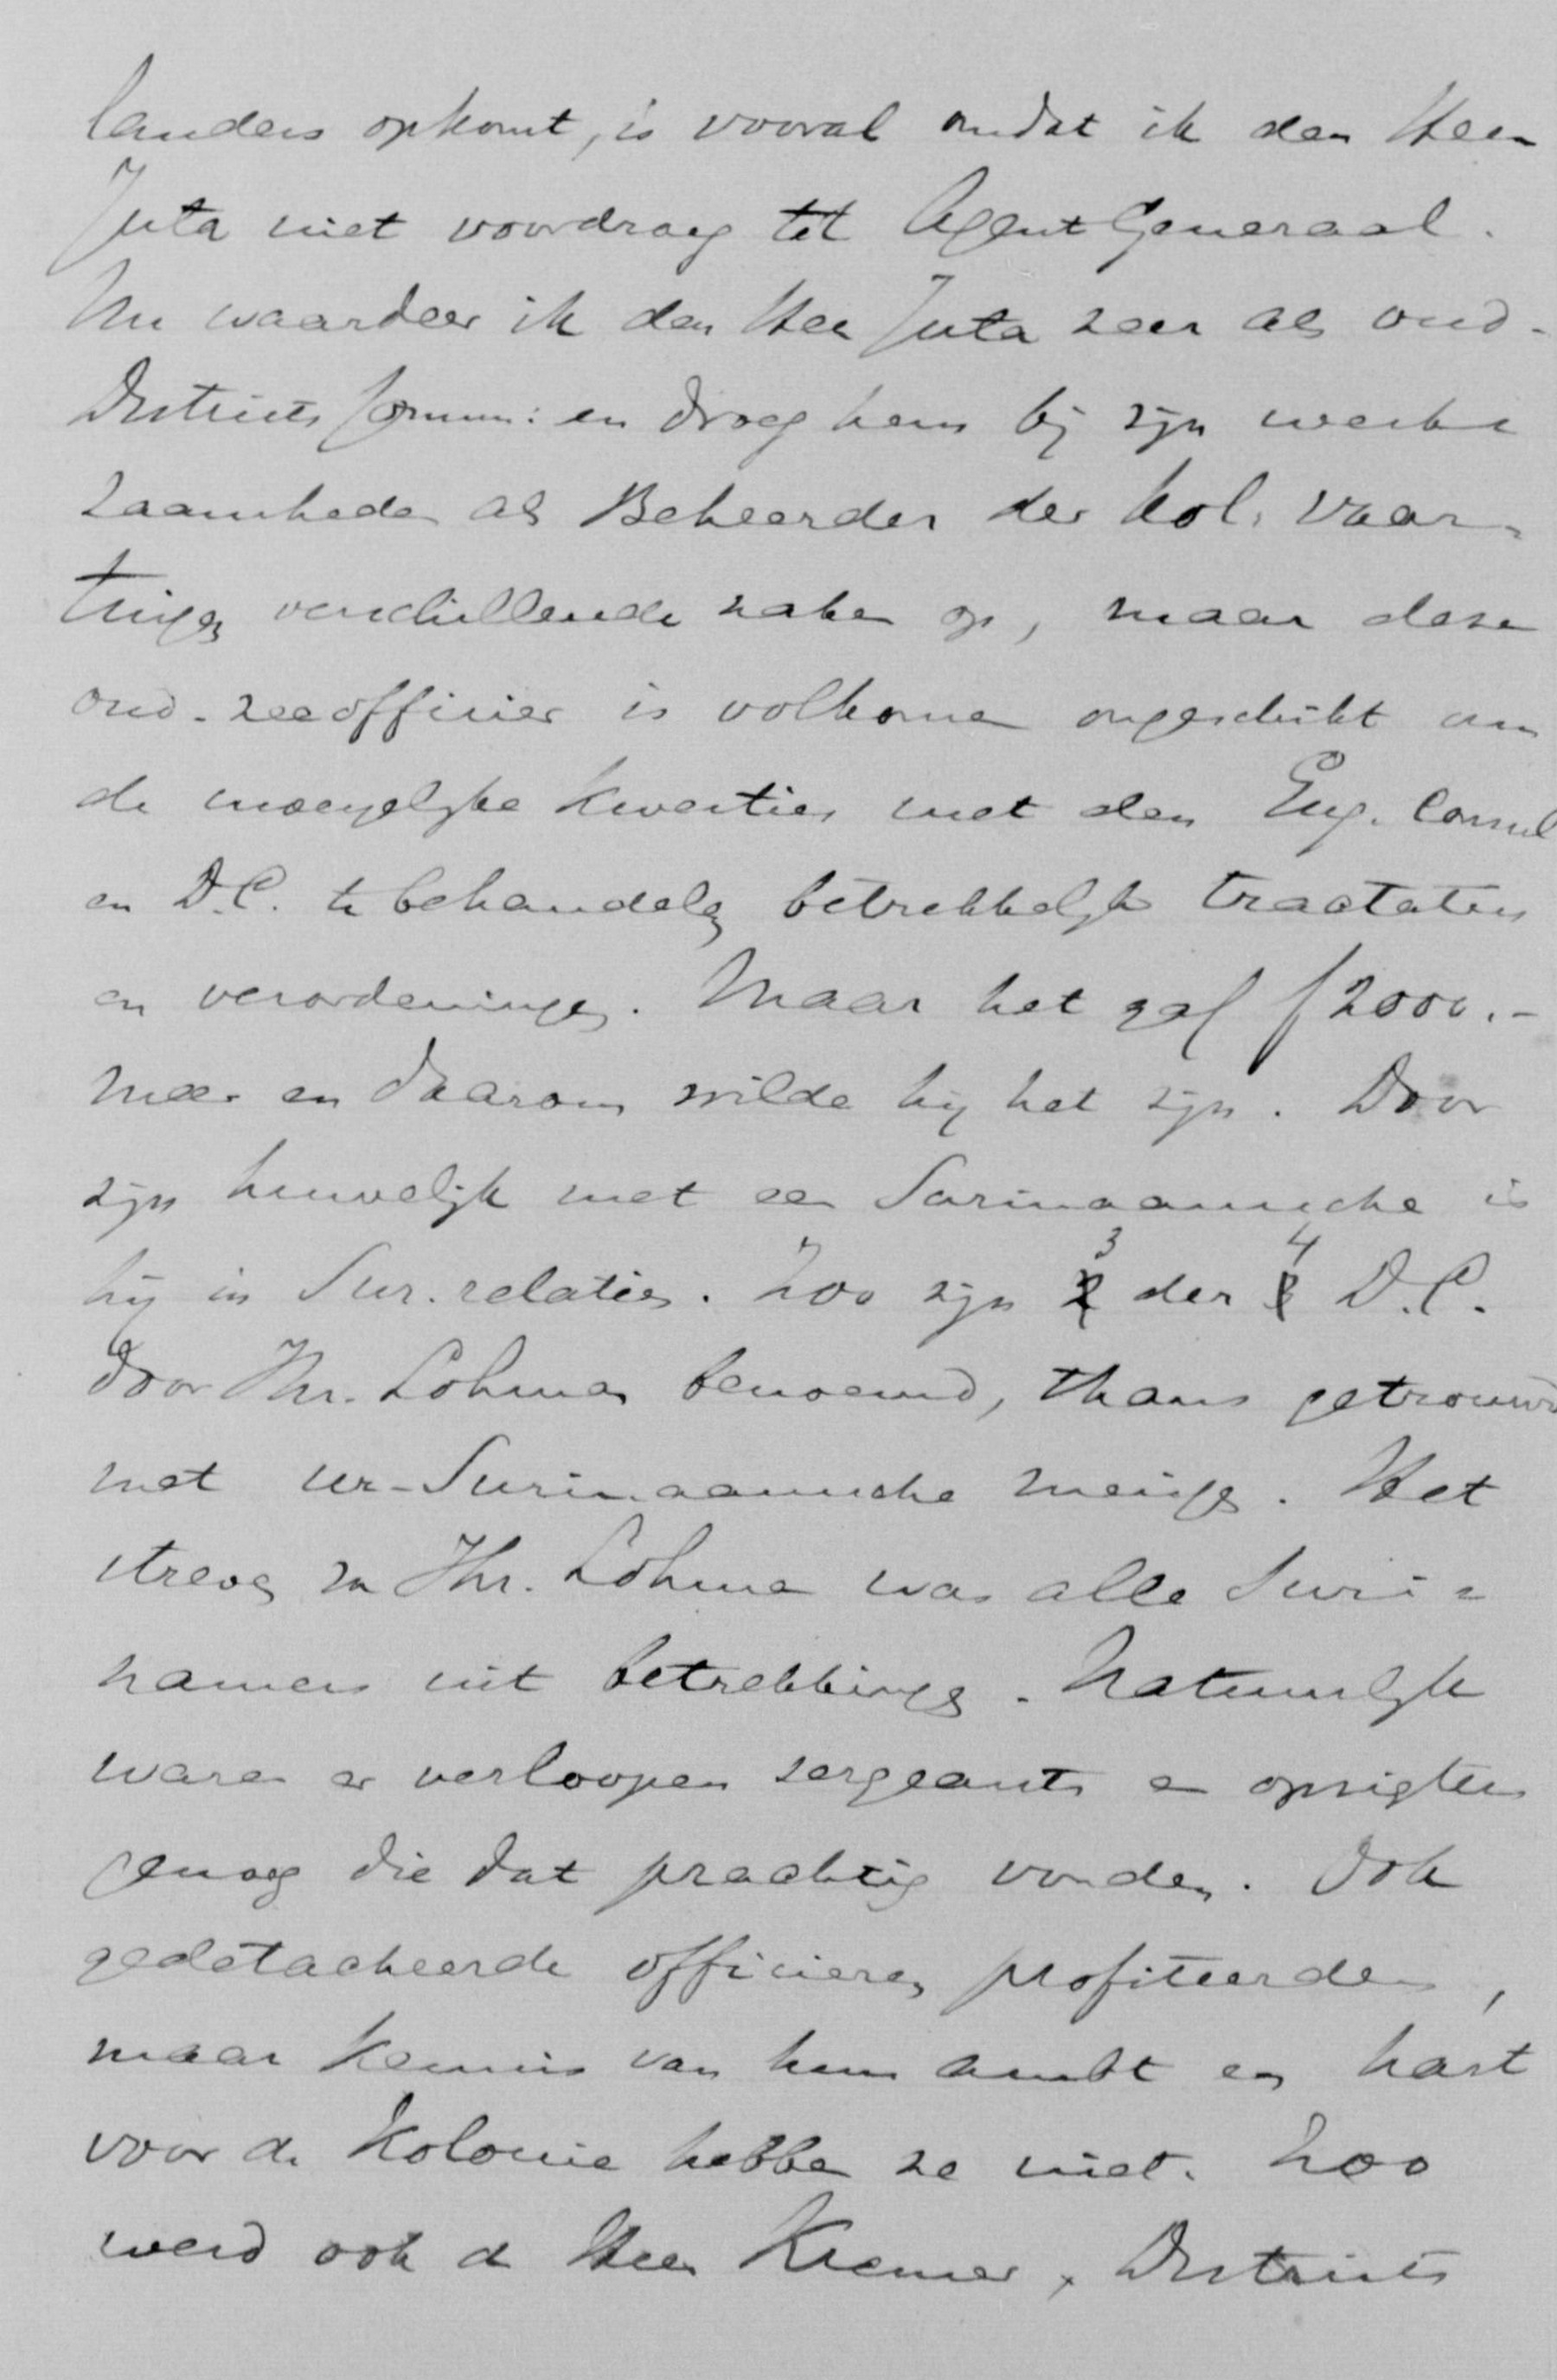 landers opkomt, is vooral omdat ik den Heer
Juta niet voordroeg tot Agent Generaal.
Nu waardeer ik den Heer Juta zeer als oud-
Districts Comm: en droeg hem bij zijn werk-
zaamheden als Beheerder der kol. vaar-
tuigen verschillende zaken op, maar deze
oud-zeeofficier is volkomen ongeschikt om
de moeyelyke kwesties met den Eng. Consul
en D.C. te behandelen betrekkelyk tractaten
en verordeningen. Maar het gaf f 2000.-
meer en daarom wilde hij het zijn. Door
zijn huwelijk met een Surinaamsche is
hij in Sur. relaties. Zoo zijn 3 der 4 D.C.
door Jhr. Lohman benoemd, thans getrouwd
met ur-Surinaamsche meisjes. Het
streven van Jhr. Lohman was alle Suri-
namers uit betrekkingen. Natuurlyk
waren er verloopen sergeants en opzigters
genoeg die dat prachtig vonden. Ook
gedetacheerde officieren profiteerden,
maar kennis van hun ambt en hart
voor de Kolonie hebben ze niet. Zoo
werd ook de Heer Kremer, Districts